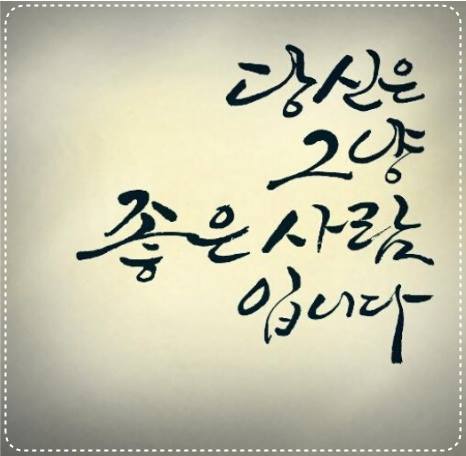 당신은
그냥
좋은 사람
입니다